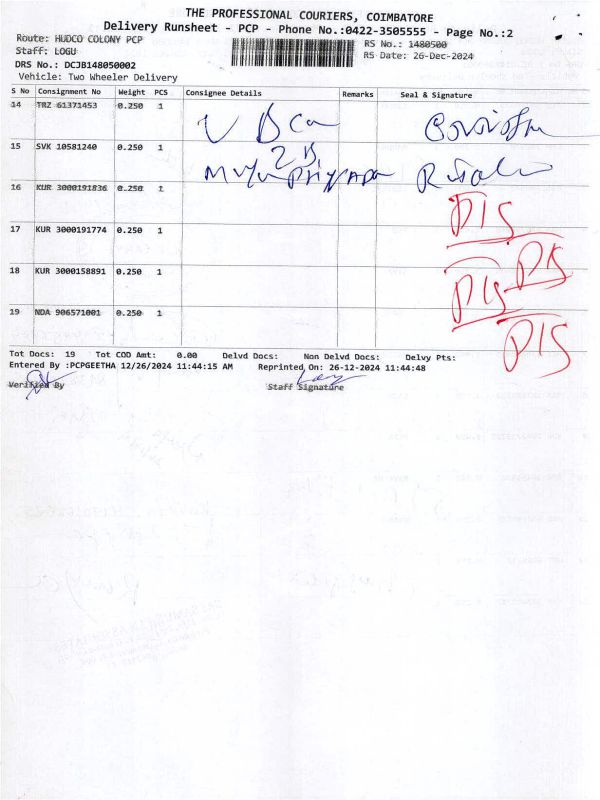 THE PROFESSIONAL COURIERS, COIMBATORE
Delivery Runsheet - PCP - Phone No.:0422-3505555 - Page No.:2
Route: HUDCO COLONY PCP RS No.: 1480500
Staff: LOGU RS Date: 26-Dec-2024
DRS No.: DCJB148050002
Vehicle: Two Wheeler Delivery
S No Consignment No Weight PCS Consignee Details Remarks Seal & Signature
14 TRZ 61371453 0.250 1
15 SVK 10581240 0.250 1
16 KUR 3000191836 0.250 1 PIS
17 KUR 3000191774 0.250 1 PIS
18 KUR 3000158891 0.250 1 PIS
19 NDA 906571001 0.250 1 PIS
Tot Docs: 19 Tot COD Amt: 0.00 Delvd Docs: Non Delvd Docs: Delvy Pts:
Entered By :PCPGEETHA 12/26/2024 11:44:15 AM Reprinted On: 26-12-2024 11:44:48
Verified By Staff Signature